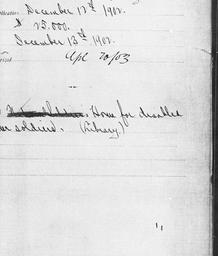 December 12th 1902.
$ 25.000.
December 13th 1902.
Apl 20/03
Home for disabled
soldiers. (Library)